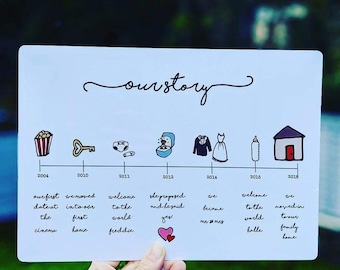 our story
2004 2010 2011 2012 2015 2018
our first
date at the
cinema
we moved
into our
first
home
welcome
to the
world
freddie
she proposed
and he said
yes!
we
became
mr & mrs
welcome
to the
world
belle
we
moved in
to our
family
home